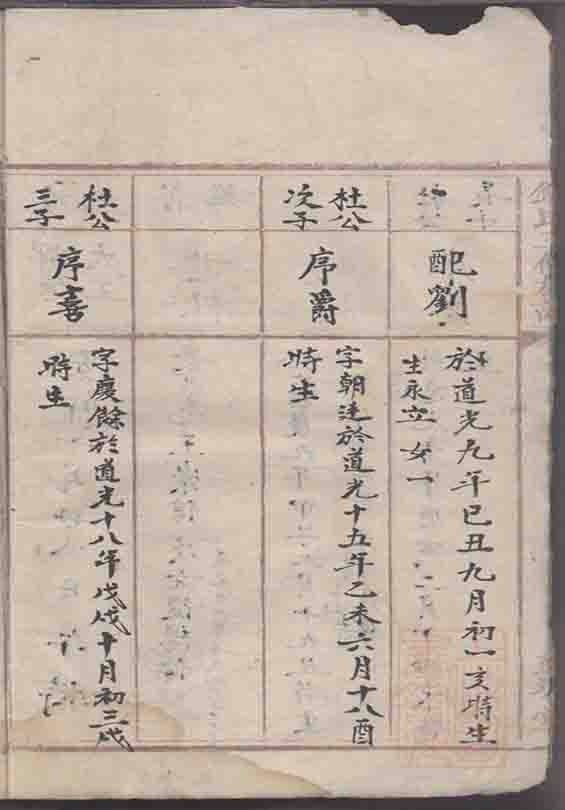 配劉
於道光九年巳丑九月初一亥時生
生永立女一
杜公
次子
序爵
字朝廷於道光十五年乙未六月十八酉
時生
杜公
三子
序喜
字慶餘於道光十八年戊戌十月初三戌
時生